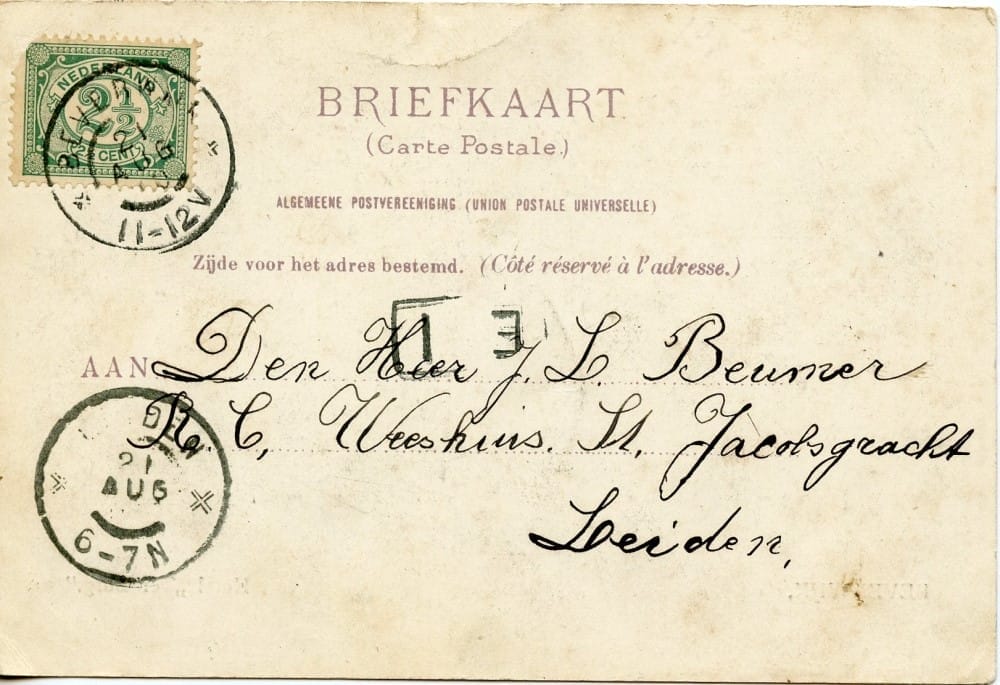 NEDERLAND
2 1/2
CENT
BEVERWIJK
21
AUG
11-12V
BRIEFKAART
(Carte Postale.)
ALGEMEENE POSTVEREENIGING (UNION POSTALE UNIVERSELLE)
Zijde voor het adres bestemd. (Côté réservé à l'adresse.)
AAN Den Heer J. L. Beumer
R. C. Weeshuis. St. Jacobsgracht
Leiden,
21
AUG
6-7N